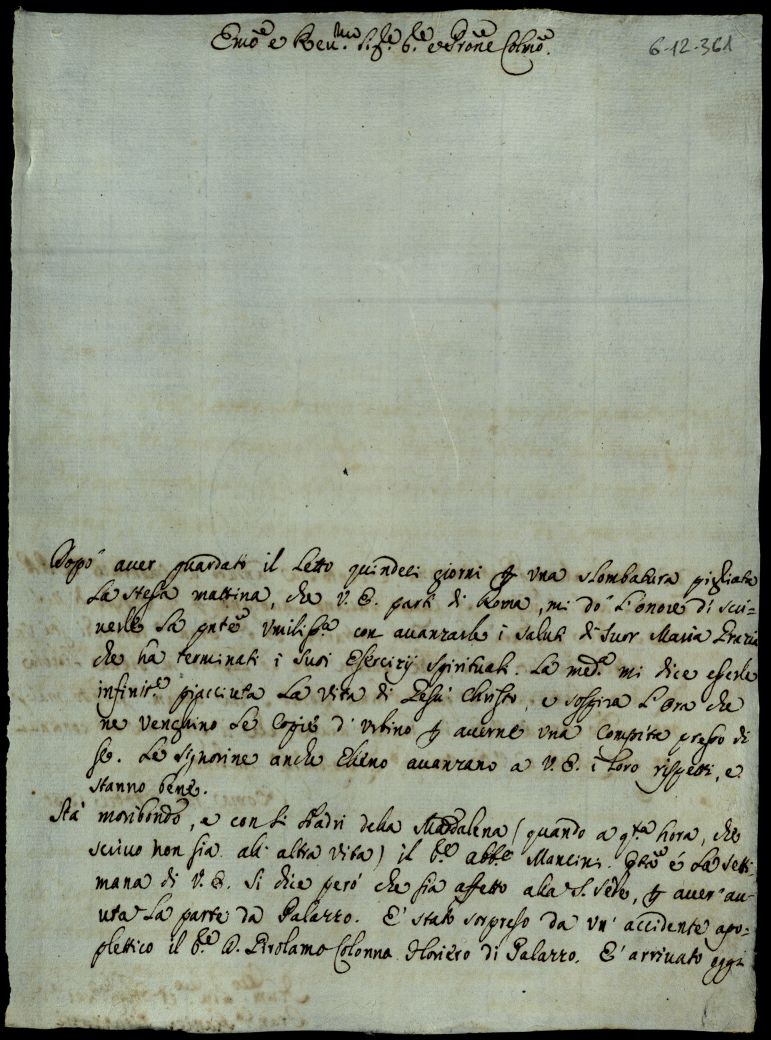 Emo͂ e Reu.mo Sig.re S.re e Prone Colmo͂.
6-12-361
Doppò auer guardato il letto quindeci giorni ꝑ una slombatura pigliata
la stessa mattina, che V. E. partì di Roma, mi do' l'onore di scri-
uerle la pnte͂ Vmiliss.a con auanzarle i saluti di Suor Maria Grazia
che ha terminati i suoi Esercizij Spirituali. La med.a mi dice esserle
infinit.e piacciuta la Vita di Gesù Christo, e sospira l'ora che
ne venghino le Copie d'Urbino ꝑ auerne una Compita presso di
se. Le Signorine anche Elleno auanzano a V. E. i loro rispetti, e
stanno bene.
Stà moribondo, e con li Padri della Maddalena (quando a q.ta hora, che
scriuo non sia all' altra vita) il S.r abb.e Mancini. Q.ta è la setti-
mana di V. E. Si dice però che sia affetto alla S. Sede, ꝑ auer au-
uta la parte da Palazzo. E' stato sorpreso da un' accidente apo-
plettico il S.r D. Girolamo Colonna Foriero di Palazzo. E' arriuato oggi